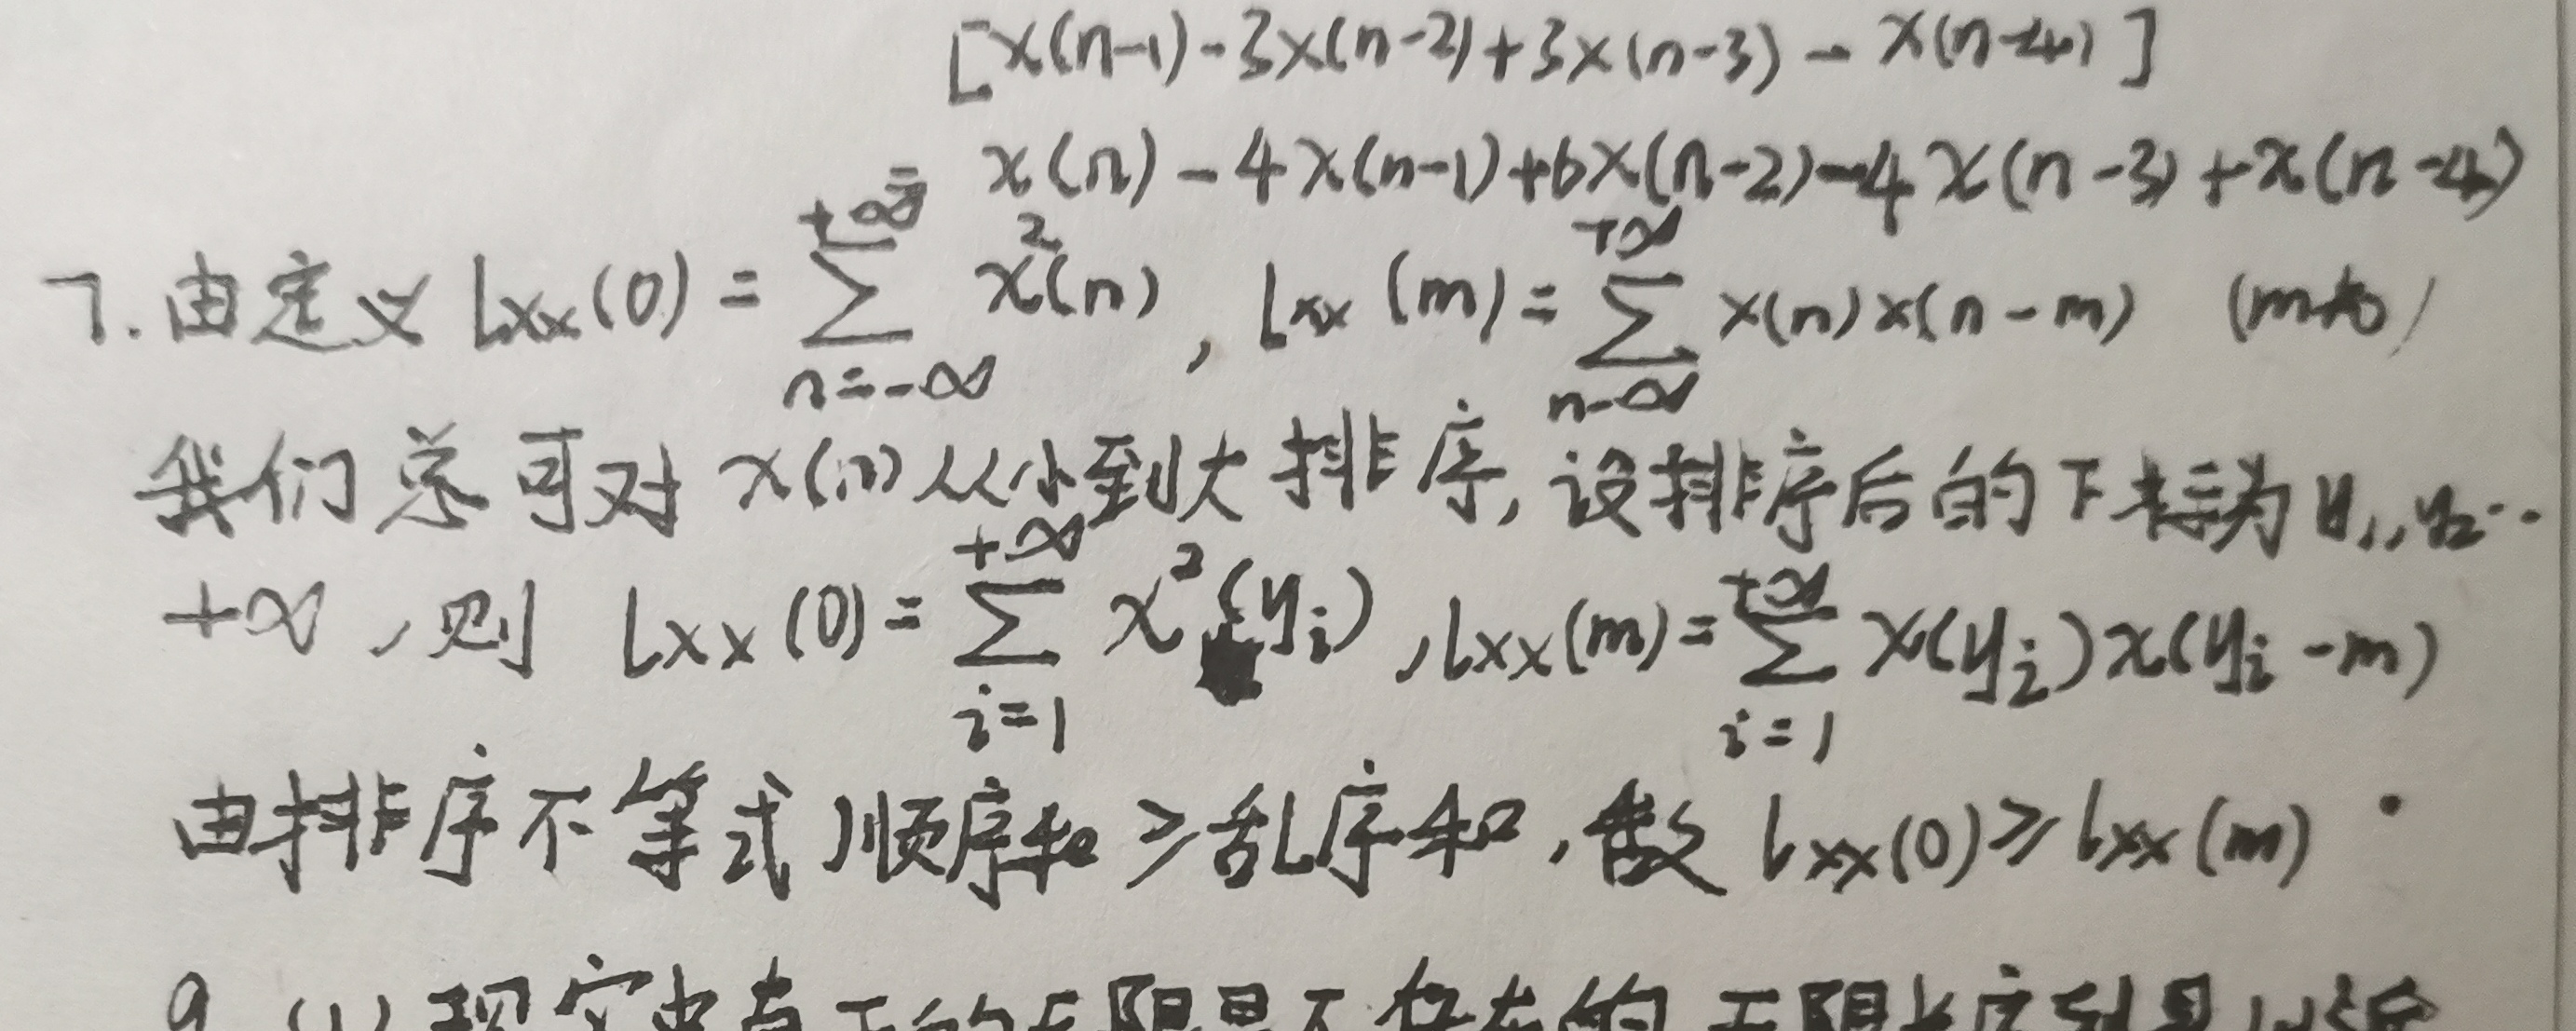 [x(n-1)-3x(n-2)+3x(n-3)-x(n-4)]
= x(n)-4x(n-1)+6x(n-2)-4x(n-3)+x(n-4)
7.由定义 lxx(0)=∑_{n=-∞}^{+∞} x²(n), lxx(m)=∑_{n-∞}^{+∞} x(n)x(n-m) (m≠0)
我们总可对x(n)从小到大排序,设排序后的下标为y₁,y₂…
+∞,则 lxx(0)=∑_{i=1}^{+∞} x²(yᵢ),lxx(m)=∑_{i=1}^{+∞} x(yᵢ)x(yᵢ-m)
由排序不等式顺序和≥乱序和,故 lxx(0)≥lxx(m).
9 (1)